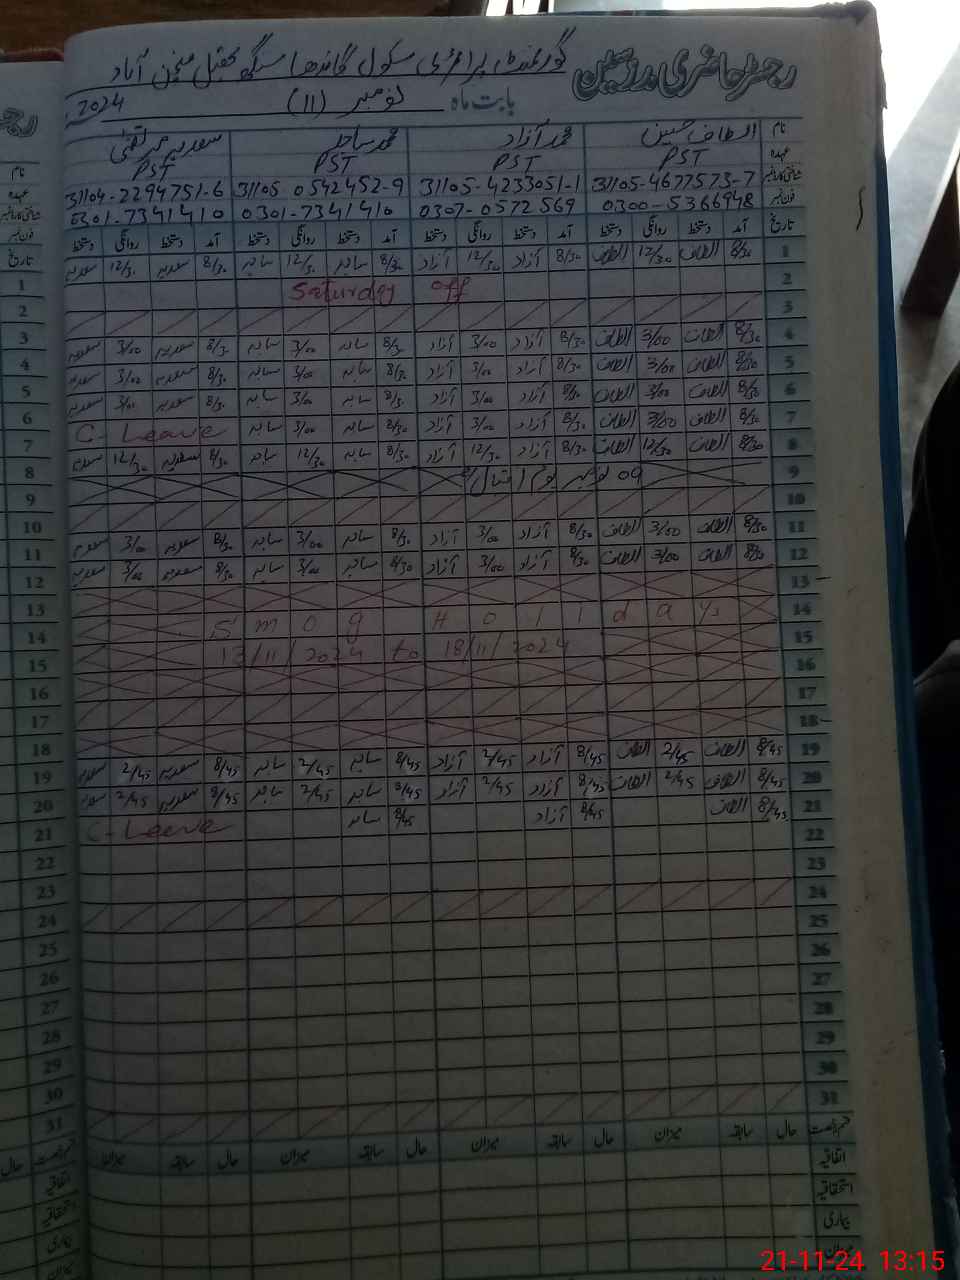 رجسٹر حاضری مدرسین گورنمنٹ پرائمری سکول
بابت ماہ نومبر (11) 2024
نام الطاف حسین محمد آزاد محمد ساجد سعدیہ مرتضیٰ
عہدہ PST PST PST PST
شناختی کارڈ نمبر 31105-4677573-7 31105-4233051-1 31105-0542452-9 31104-2294751-6
فون نمبر 0300-5366948 0307-0572569 0301-7341410 0301-7341410
تاریخ آمد دستخط روانگی دستخط آمد دستخط روانگی دستخط آمد دستخط روانگی دستخط آمد دستخط روانگی دستخط
1 8/30 الطاف 12/30 الطاف 8/30 آزاد 12/30 آزاد 8/30 ساجد 12/30 ساجد 8/30 سعدیہ 12/30 سعدیہ
2 Saturday off
3
4 8/30 الطاف 3/00 الطاف 8/30 آزاد 3/00 آزاد 8/30 ساجد 3/00 ساجد 8/30 سعدیہ 3/00 سعدیہ
5 8/30 الطاف 3/00 الطاف 8/30 آزاد 3/00 آزاد 8/30 ساجد 3/00 ساجد 8/30 سعدیہ 3/00 سعدیہ
6 8/30 الطاف 3/00 الطاف 8/30 آزاد 3/00 آزاد 8/30 ساجد 3/00 ساجد 8/30 سعدیہ 3/00 سعدیہ
7 8/30 الطاف 3/00 الطاف 8/30 آزاد 3/00 آزاد 8/30 ساجد 3/00 ساجد C-Leave
8 8/30 الطاف 12/30 الطاف 8/30 آزاد 12/30 آزاد 8/30 ساجد 12/30 ساجد 8/30 سعدیہ 12/30 سعدیہ
9 09 نومبر یوم اقبال
10
11 8/30 الطاف 3/00 الطاف 8/30 آزاد 3/00 آزاد 8/30 ساجد 3/00 ساجد 8/30 سعدیہ 3/00 سعدیہ
12 8/30 الطاف 3/00 الطاف 8/30 آزاد 3/00 آزاد 8/30 ساجد 3/00 ساجد 8/30 سعدیہ 3/00 سعدیہ
13
14 Smog Holidays
15 13/11/2024 to 18/11/2024
16
17
18
19 8/45 الطاف 2/45 الطاف 8/45 آزاد 2/45 آزاد 8/45 ساجد 2/45 ساجد 8/45 سعدیہ 2/45 سعدیہ
20 8/45 الطاف 2/45 الطاف 8/45 آزاد 2/45 آزاد 8/45 ساجد 2/45 ساجد 8/45 سعدیہ 2/45 سعدیہ
21 8/45 الطاف 8/45 آزاد 8/45 ساجد C-Leave
22
23
24
25
26
27
28
29
30
31
حال سابقہ میزان حال سابقہ میزان حال سابقہ میزان حال سابقہ میزان
اتفاقیہ
استحقاقیہ
بیماری
میزان
21-11-24 13:15